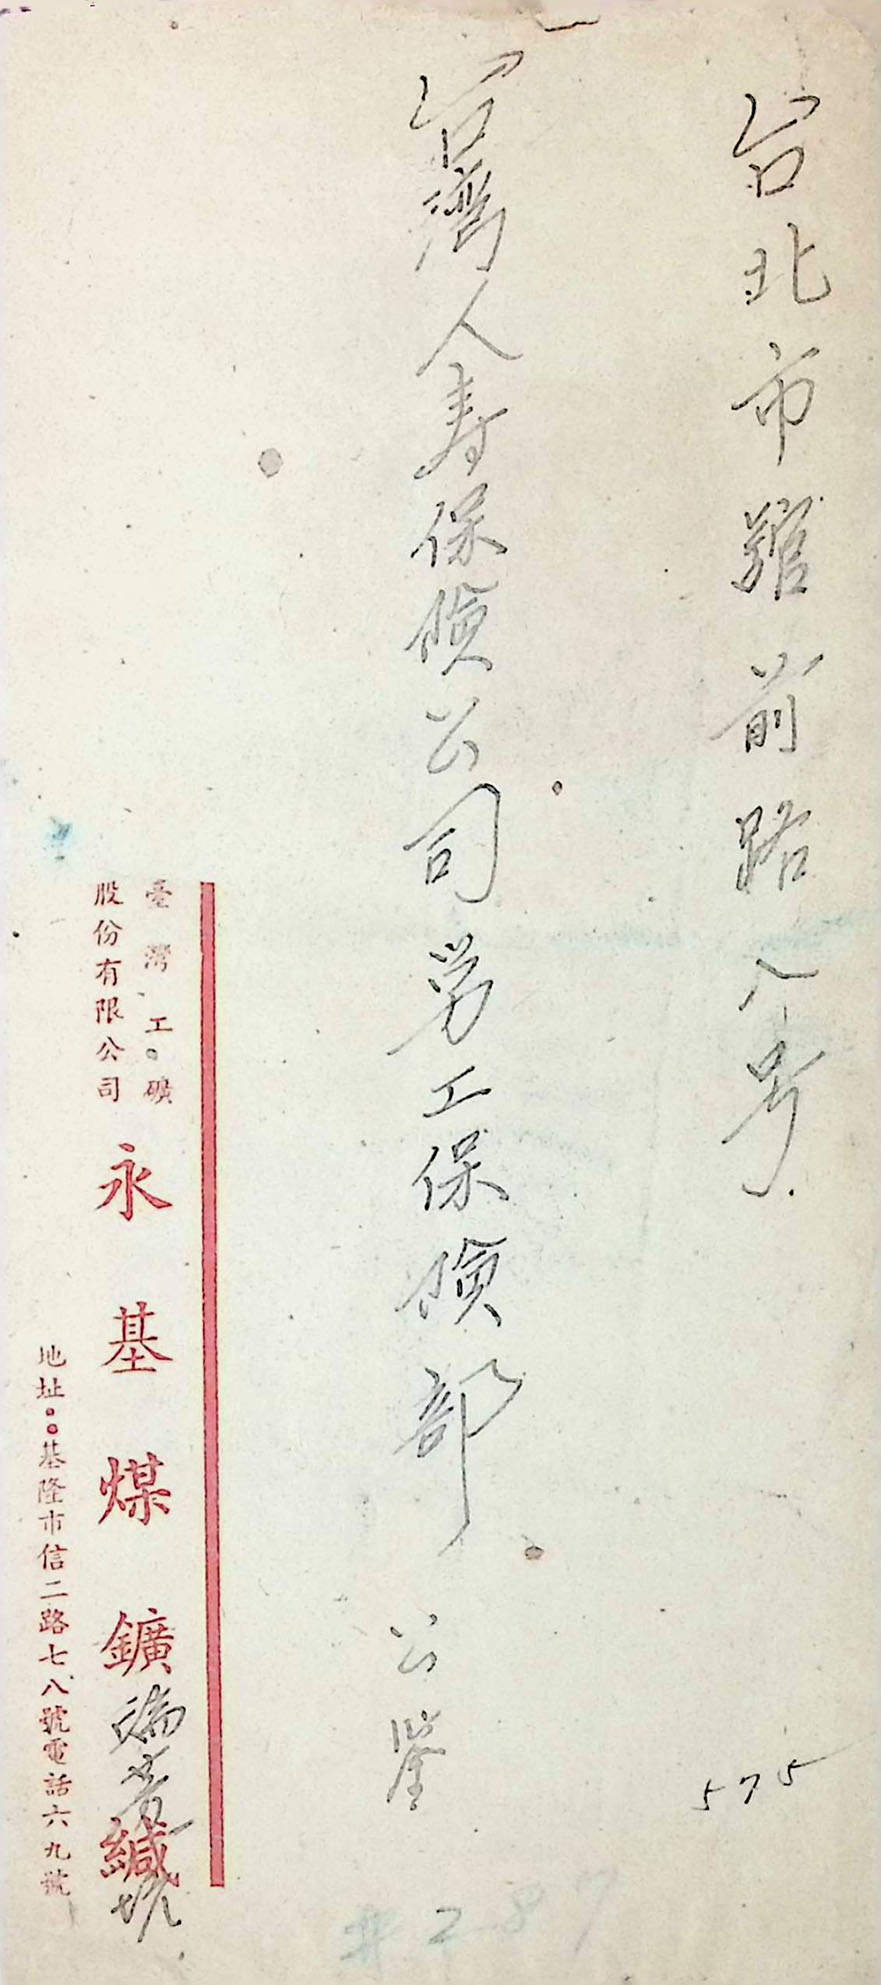 台北市舘前路八号
台灣人寿保險公司勞工保險部 公鑒
575
臺灣工礦
股份有限公司
永基煤鑛瑞芳坑緘
地址：基隆市信二路七八號電話六九號
#287